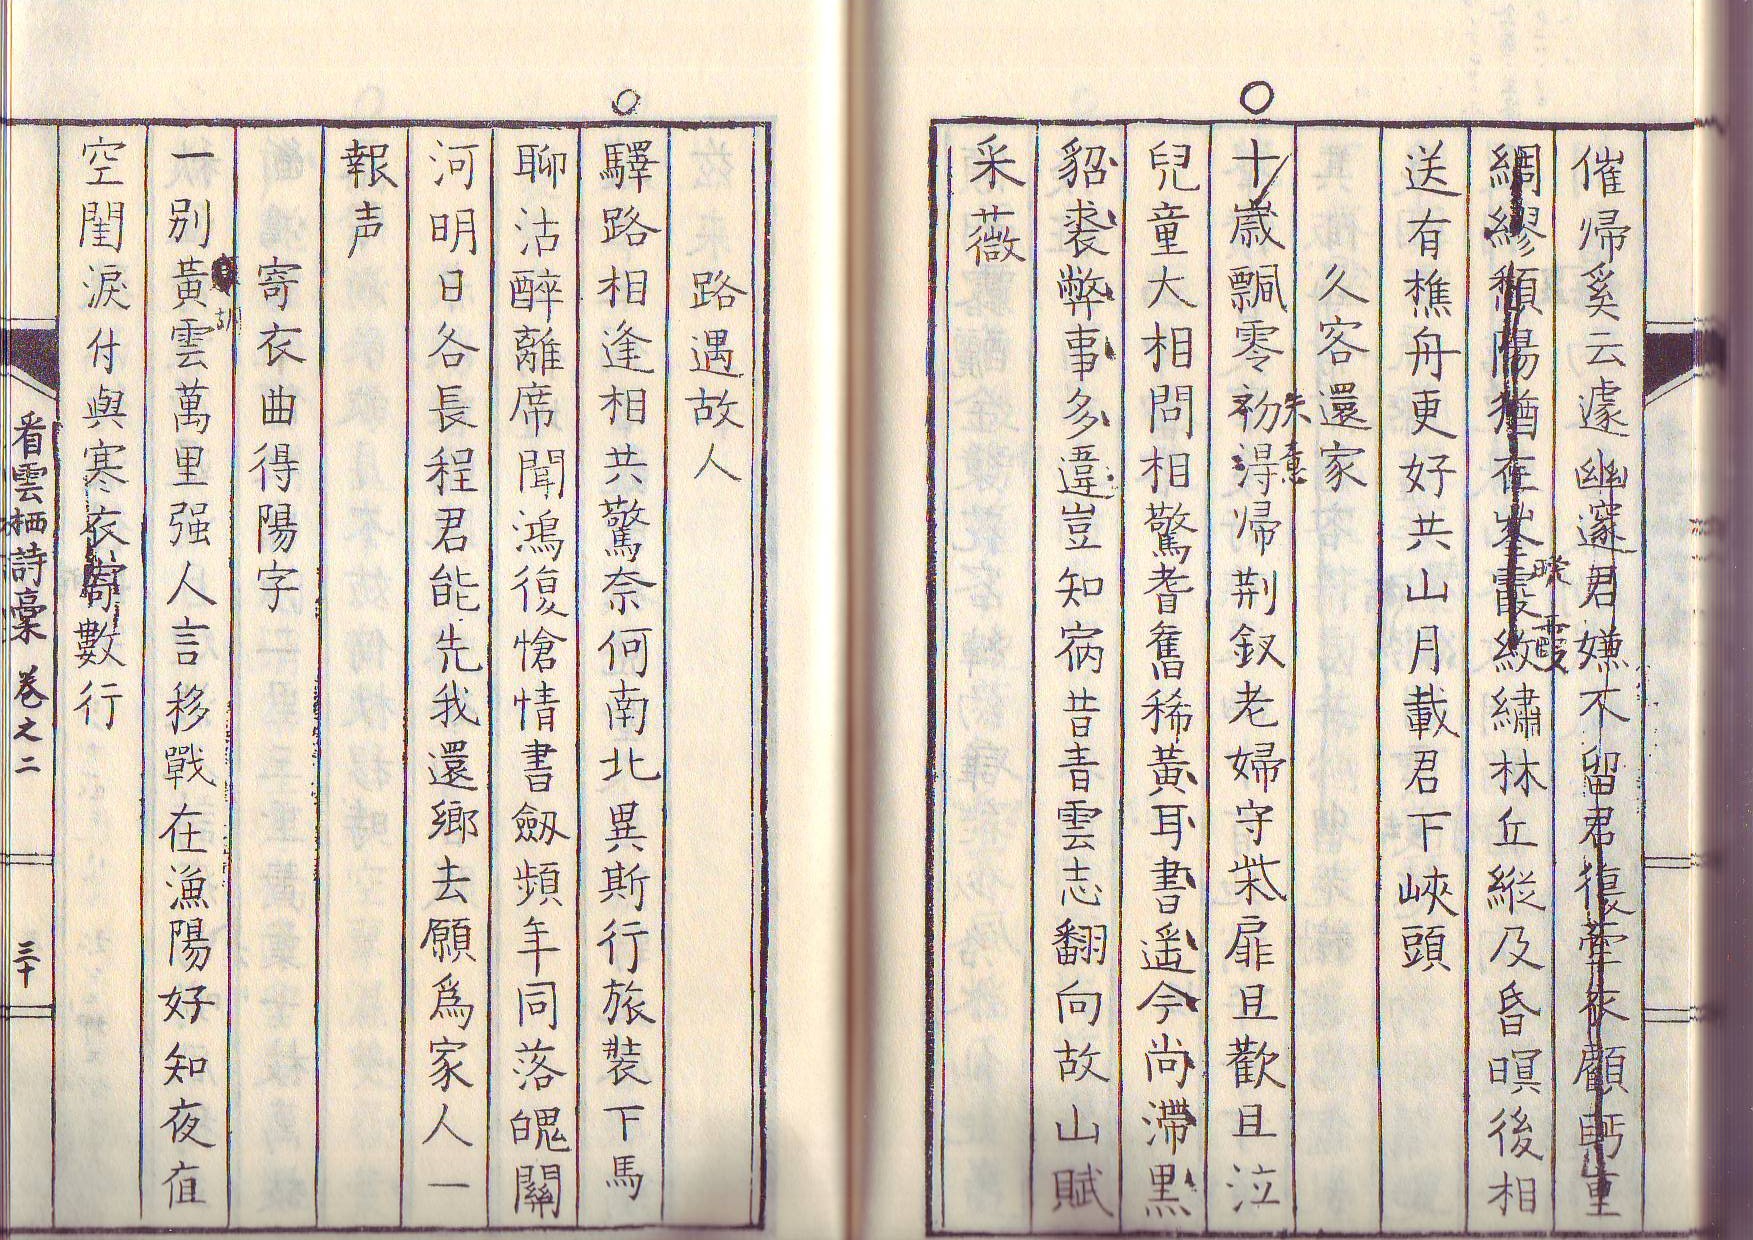 催帰奚云遽幽邃君嫌不留君復牽衣顧眄重
綢繆頽陽猶在峯霞紋繡林丘縦及昏暝後相
暎霞
送有樵舟更好共山月載君下峽頭
久客還家
十歳飄零初得帰荆釵老婦守柴扉且歡且泣
失意
兒童大相問相驚耆舊稀黄耳書遥今尚滯黒
貂裘弊事多違豈知病昔青雲志翻向故山賦
采薇
路遇故人
驛路相逢相共驚奈何南北異斯行旅裝下馬
聊沽醉離席聞鴻復愴情書劔頻年同落魄關
河明日各長程君能先我還鄉去願爲家人一
報声
寄衣曲得陽字
一別黄雲萬里强人言移戰在漁陽好知夜直
胡
空閨淚付與寒衣寄數行
看雲栖詩稾 卷之二
三十